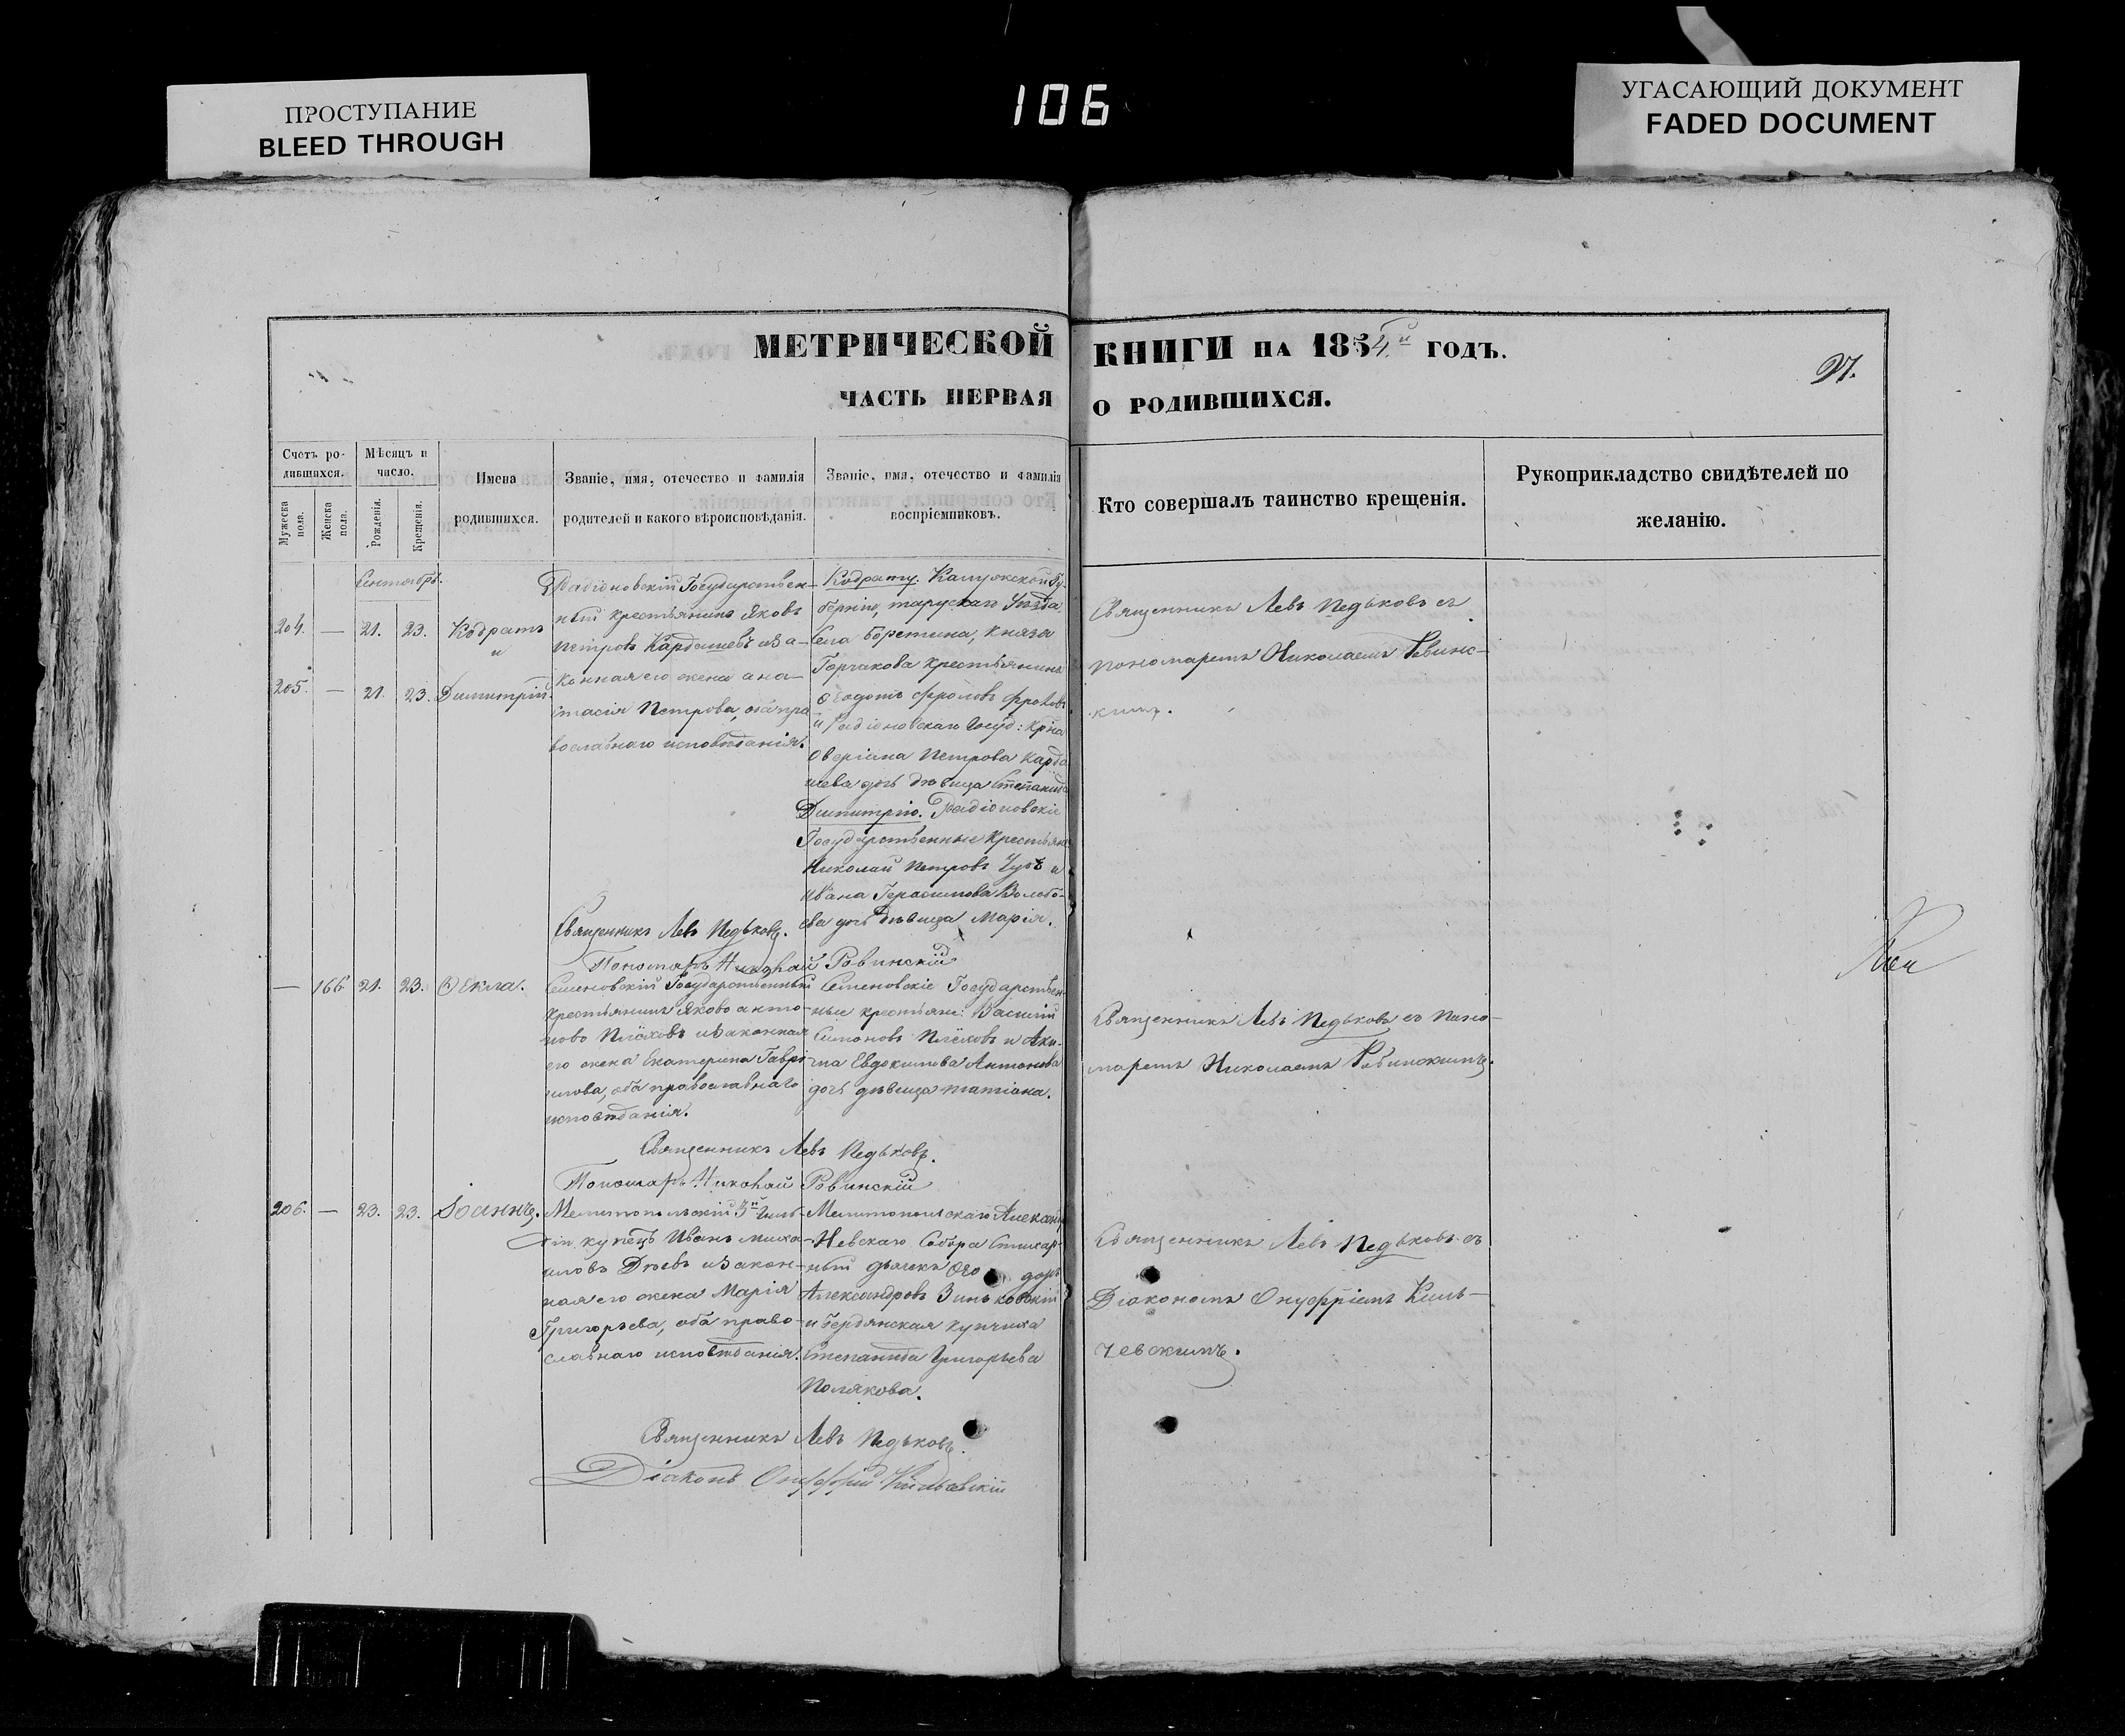 ПРОСТУПАНИЕ
BLEED THROUGH
106
УГАСАЮЩИЙ ДОКУМЕНТ
FADED DOCUMENT
МЕТРИЧЕСКОЙ КНИГИ НА 1854й ГОДЪ.
ЧАСТЬ ПЕРВАЯ О РОДИВШИХСЯ.
Счетъ ро-
дившихся.
Мужеска пола.
Женска пола.
Мѣсяцъ и
число.
Рожденія.
Крещенія.
Имена
родившихся.
Званіе, имя, отечество и фамилія
родителей и какого вѣроисповѣданія.
Званіе, имя, отечество и фамилія
воспріемниковъ.
Кто совершалъ таинство крещенія.
Рукоприкладство свидѣтелей по
желанію.
Сентябрь.
204. — 21. 23. Кодратъ
и
205. — 21. 23. Димитрій.
Радіоновскій Государствен-
ный крестьянинъ Яковъ
Петровъ Кардашевъ иза-
конная его жена Ана-
стасія Петрова, оба пра
вославнаго исповѣданія.
Кодрату. Калужской Гу-
берніи, Тарускаго Уѣзда
Села Боретина, Князя
Горчакова крестьянинъ
Ѳеодотъ Фроловъ Фроловъ
и Радіоновскаго Госуд: кр-на
Оверіана Петрова Карда
шева дочь дѣвица Степанида
Димитрію. Радіоновскіе
Государственные крестьяне
Николай Петровъ Чубъ и
Ивана Герасимова Волобо-
ева дочь дѣвица Марія.
Священникъ Левъ Педьковъ.
Пономарь Николай Ровинскій
Священникъ Левъ Педьковъ съ
пономаремъ Николаемъ Ровинс-
кимъ.
— 166 21. 23. Ѳекла.
Семеновскій Государственный
крестьянинъ Яковъ Анто-
новъ Плёховъ изаконная
его жена Екатерина Гаврі
илова, оба православнаго
исповѣданія.
Семеновскіе Государствен-
ные крестьяне: Василій
Симоновъ Плёховъ и Аки-
ма Евдокимова Антонова
дочь дѣвица Татіана.
Священникъ Левъ Педьковъ.
Пономарь Николай Ровинскій
Священникъ Левъ Педьковъ съ Поно-
маремъ Николаемъ Ровинскимъ.
206. — 23. 23. Іоаннъ.
Мелитопольскій 3й Гиль-
діи купецъ Иванъ Миха-
иловъ Дѣевъ изакон-
ная его жена Марія
Григорьева, оба право-
славнаго исповѣданія.
Мелитопольскаго Александ
Невскаго Собора Стихар-
ный дьячекъ
Александровъ Зиньковскій
и Бердянская купчиха
Степанида Григорьева
Полякова.
Священникъ Левъ Педьковъ.
Діаконъ Онуфрій Кильчевскій
Священникъ Левъ Педьковъ съ
Діакономъ Онуфріемъ Киль-
чевскимъ.